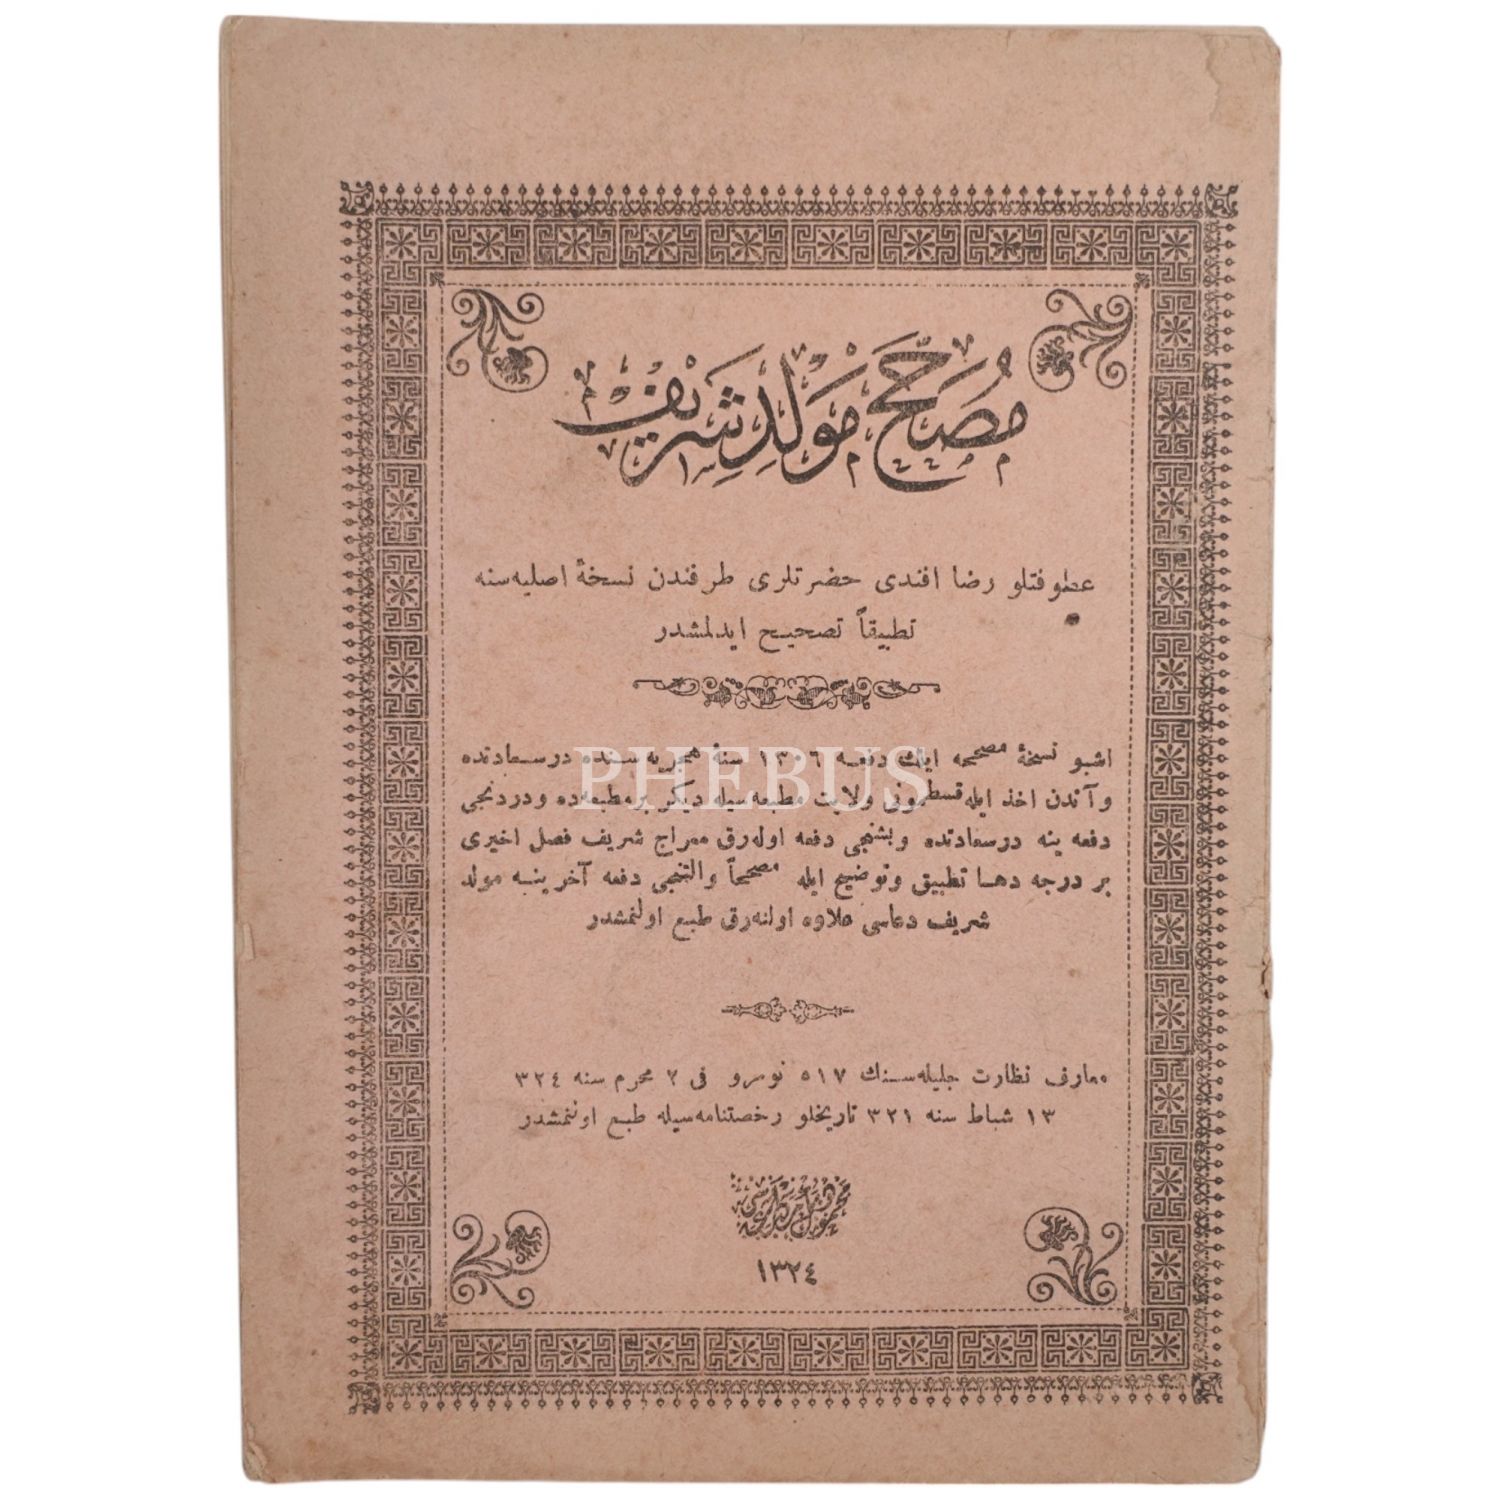 مُصَحَّح مَوْلِدِ شَرِيف
عطوفتلو رضا افندی حضرتلری طرفندن نسخۀ اصلیه‌سنه
تطبیقاً تصحیح ایدلمشدر
اشبو نسخۀ مصححه ایلك دفعه ١٣٠٦ سنۀ هجریه‌سنده درسعادتده
وآندن اخذ ایله قسطمونی ولایت مطبعه‌سیله دیكر بر مطبعه‌ده ودردنجی
دفعه ینه درسعادتده وبشنجی دفعه اوله‌رق معراج شریف فصل اخیری
بر درجه دها تطبیق وتوضیح ایله مصححاً والتنجی دفعه آخرینه مولد
شریف دعاسی علاوه اولنه‌رق طبع اولنمشدر
PHEBUS
معارف نظارت جلیله‌سنك ٥١٧ نومرو فی ٢ محرم سنه ٣٢٤
١٣ شباط سنه ٣٢١ تاریخلو رخصتنامه‌سیله طبع اولنمشدر
١٣٢٤